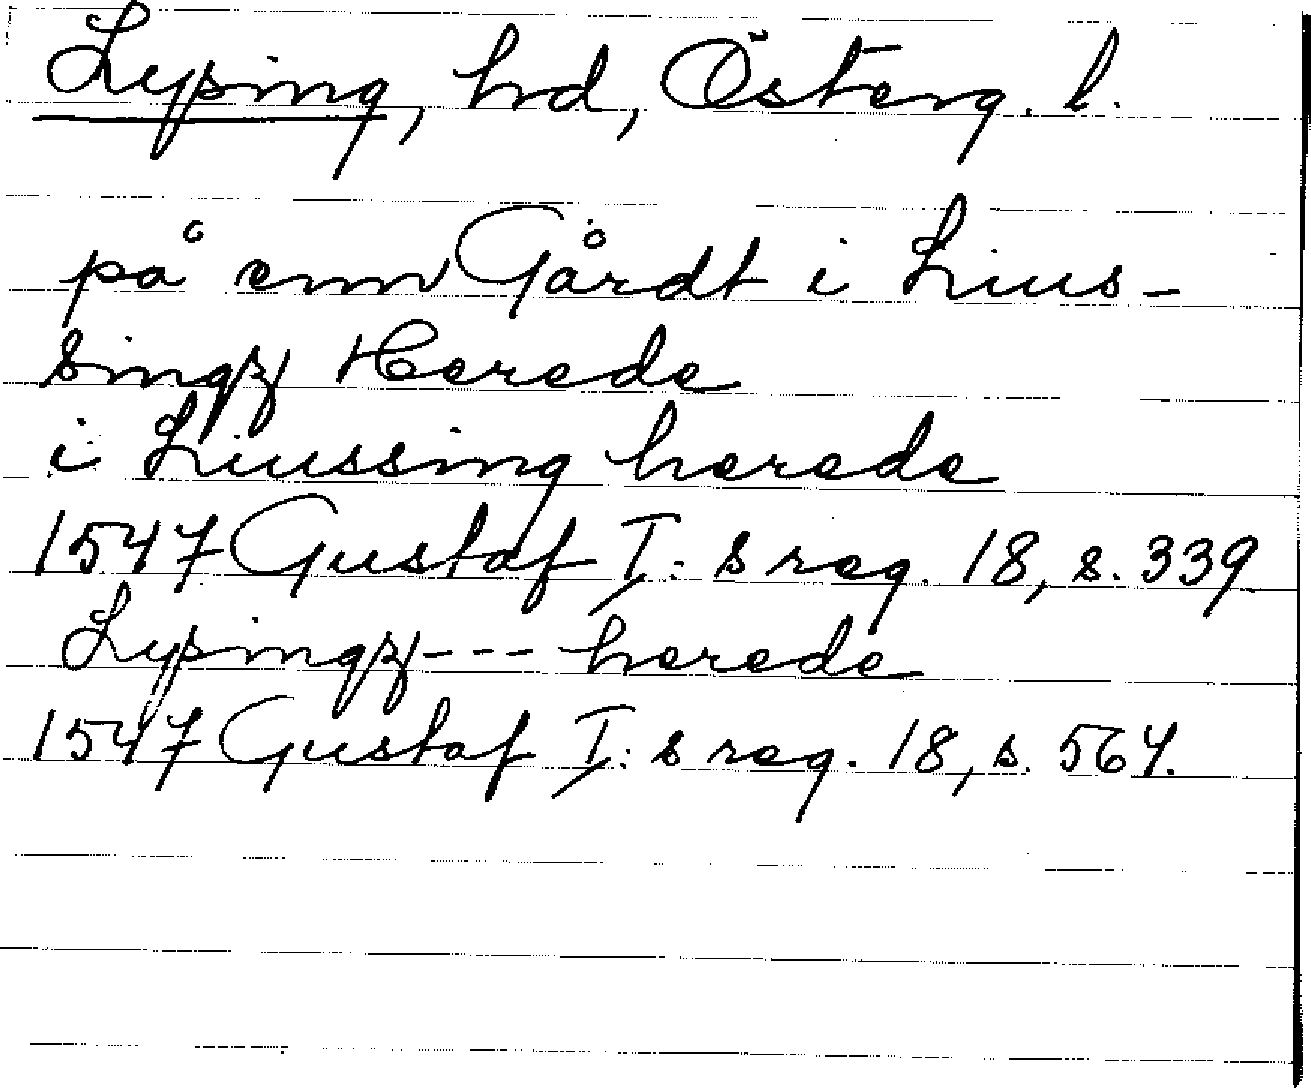 Lysing, hd, Österg. l.
på enn Gårdt i Lius-
singz Herede
i Liussing herede
1547 Gustaf I:s reg. 18, s. 339
Lysingz --- herede
1547 Gustaf I:s reg. 18, s. 564.